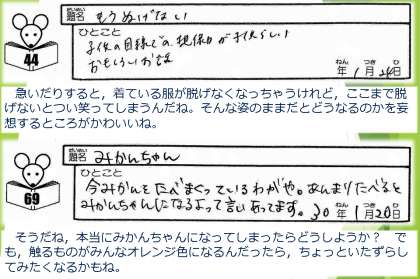 題名 もうぬげない
ひとこと
子供の目線での、想像力が すばらしい!
おもしろいお話
44
年 1月 24日
急いだりすると，着ている服が脱げなくなっちゃうけれど，ここまで脱
げないとつい笑ってしまうんだね。そんな姿のままだとどうなるのかを妄
想するところがかわいいね。
題名 みかんちゃん
ひとこと
今みかんをたべまくっているわがや。あんまりたべると
みかんちゃんになるよって言いあってます。
69
30年 1月 20日
そうだね，本当にみかんちゃんになってしまったらどうしようか？ で
も，触るものがみんなオレンジ色になるんだったら，ちょっといたずらし
てみたくなるかもね。